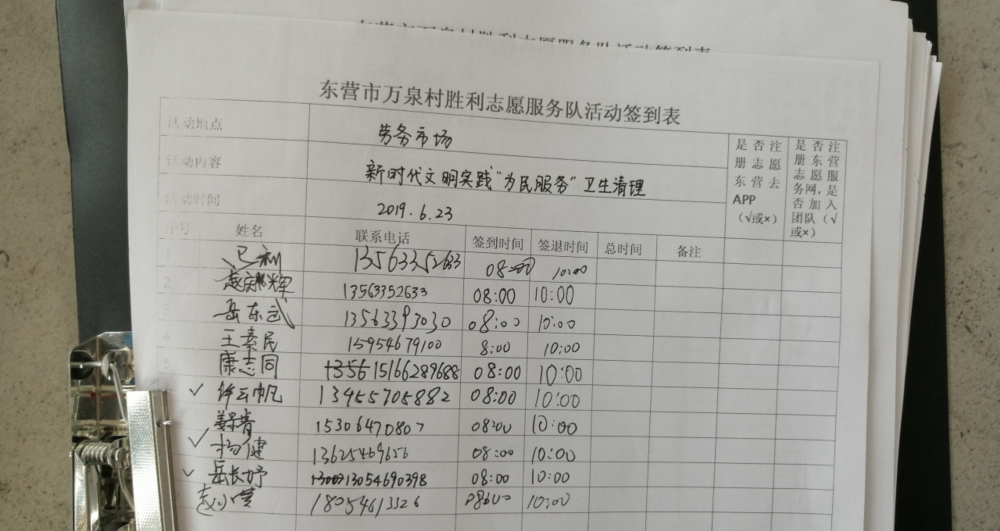 东营市万泉村胜利志愿服务队活动签到表
活动地点 劳务市场 是否注册志愿东营去APP（√或×） 是否注册东营志愿服务网，是否加入团队（√或×）
活动内容 新时代文明实践"为民服务"卫生清理
活动时间 2019.6.23
序号 姓名 联系电话 签到时间 签退时间 总时间 备注
1 13563352633 08:00 10:00
2 13563352633 08:00 10:00
3 岳东武 13563393030 08:00 10:00
4 王素民 15954679100 8:00 10:00
5 康志同 15166289688 08:00 10:00
√ 许云帆 13455705882 08:00 10:00
15306470807 08:00 10:00
√ 杨健 13625469656 08:00 10:00
√ 岳长妤 13054690398 08:00 10:00
赵小雪 18054613326 08:00 10:00